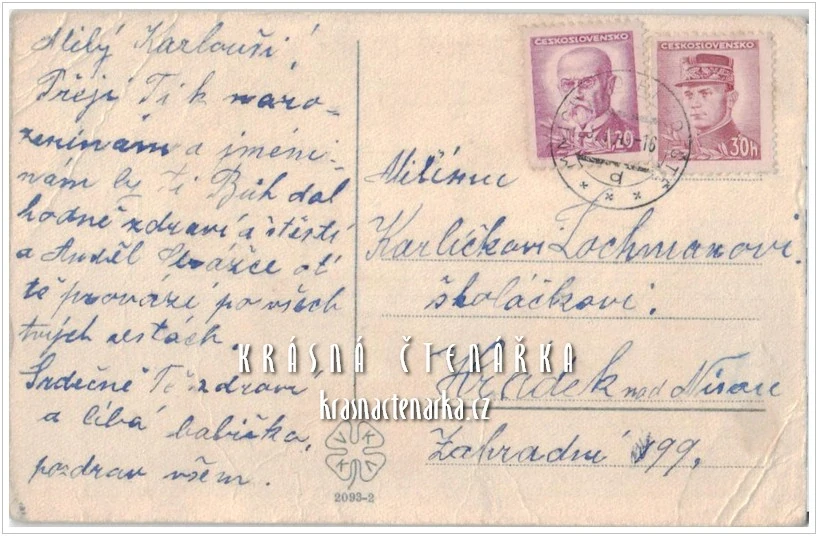 Milý Karlouši!
Přeji Ti k naro-
zeninám a jmeni-
nám by ti Bůh dal
hodně zdraví a štěstí
a Anděl Strážce ať
tě provází po všech
tvých cestách.
Srdečně Tě zdraví
a líbá babička,
pozdrav všem.
ČESKOSLOVENSKO
1,20
ČESKOSLOVENSKO
30h
Milému
Karlíčkovi Lochmanovi
školáčkovi.
Hrádek nad Nisou
Zahradní 199.
KRÁSNÁ ČTENÁŘKA
krasnactenarka.cz
VKVK
2093-2